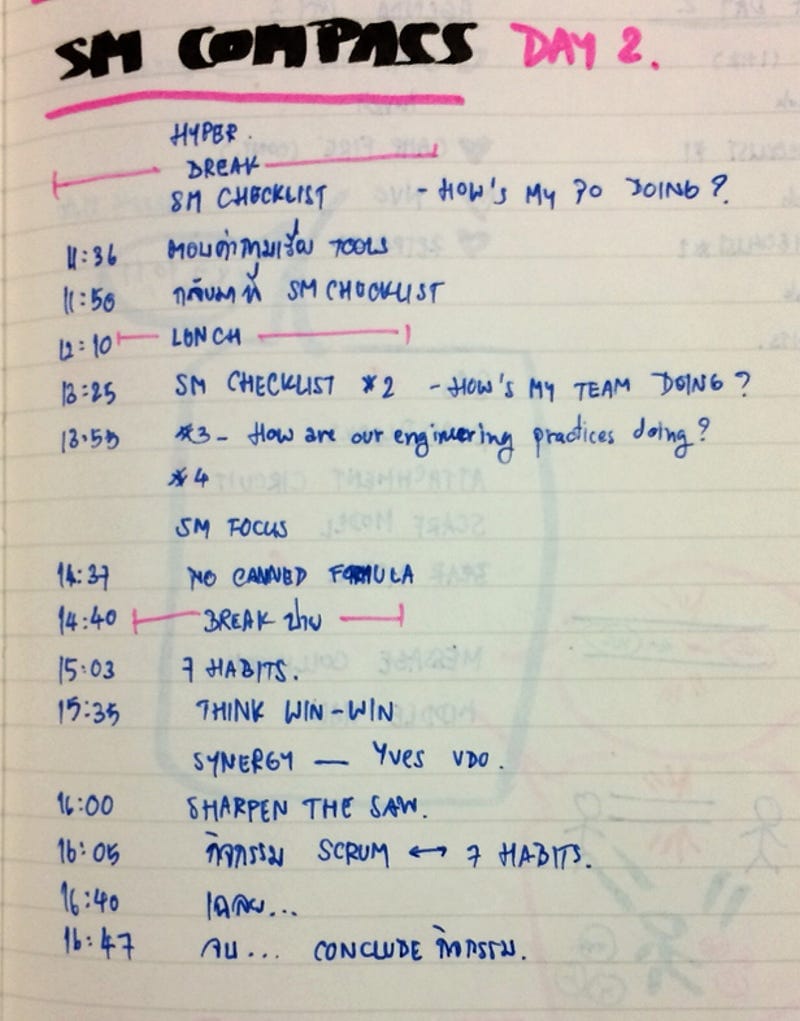 SM COMPASS DAY 2.
HYPER.
BREAK
SM CHECKLIST - HOW'S MY PO DOING?
11:36 ตอบคำถามเรื่อง TOOLS
11:50 กลับมาที่ SM CHECKLIST
12:10 LUNCH
13:25 SM CHECKLIST *2 - HOW'S MY TEAM DOING?
13:55 *3 - How are our engineering practices doing?
*4
SM FOCUS
14:37 NO CANNED FORMULA
14:40 BREAK บ่าย
15:03 7 HABITS.
15:35 THINK WIN-WIN
SYNERGY — Yves VDO.
16:00 SHARPEN THE SAW.
16:05 กิจกรรม SCRUM ↔ 7 HABITS.
16:40 เฉลย...
16:47 จบ... CONCLUDE กิจกรรม.